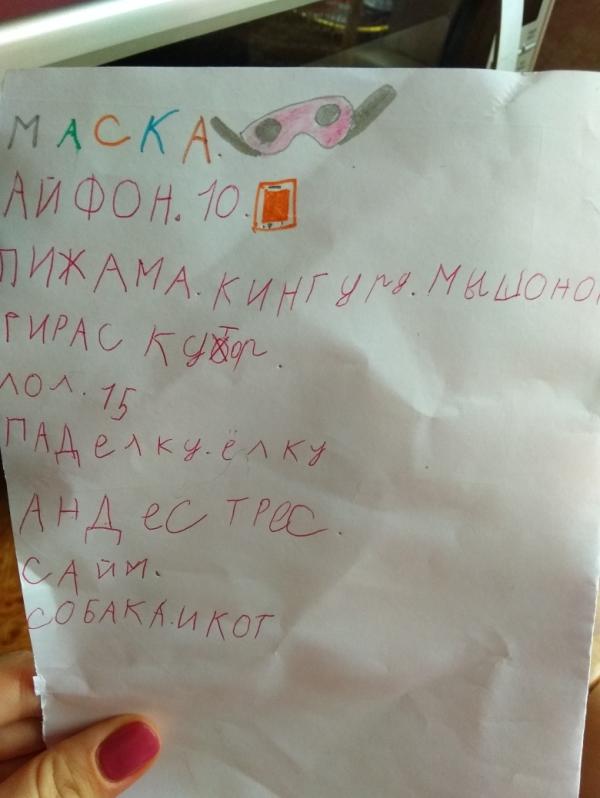 МАСКА.
АЙФОН. 10.
ПИЖАМА. КИНГУРУ. МЫШОНО
ГИРАС
ЛОЛ. 15
ПАДелку. ёлку
АНДеС ТРеС.
САйм.
СОБАКА. И КОТ